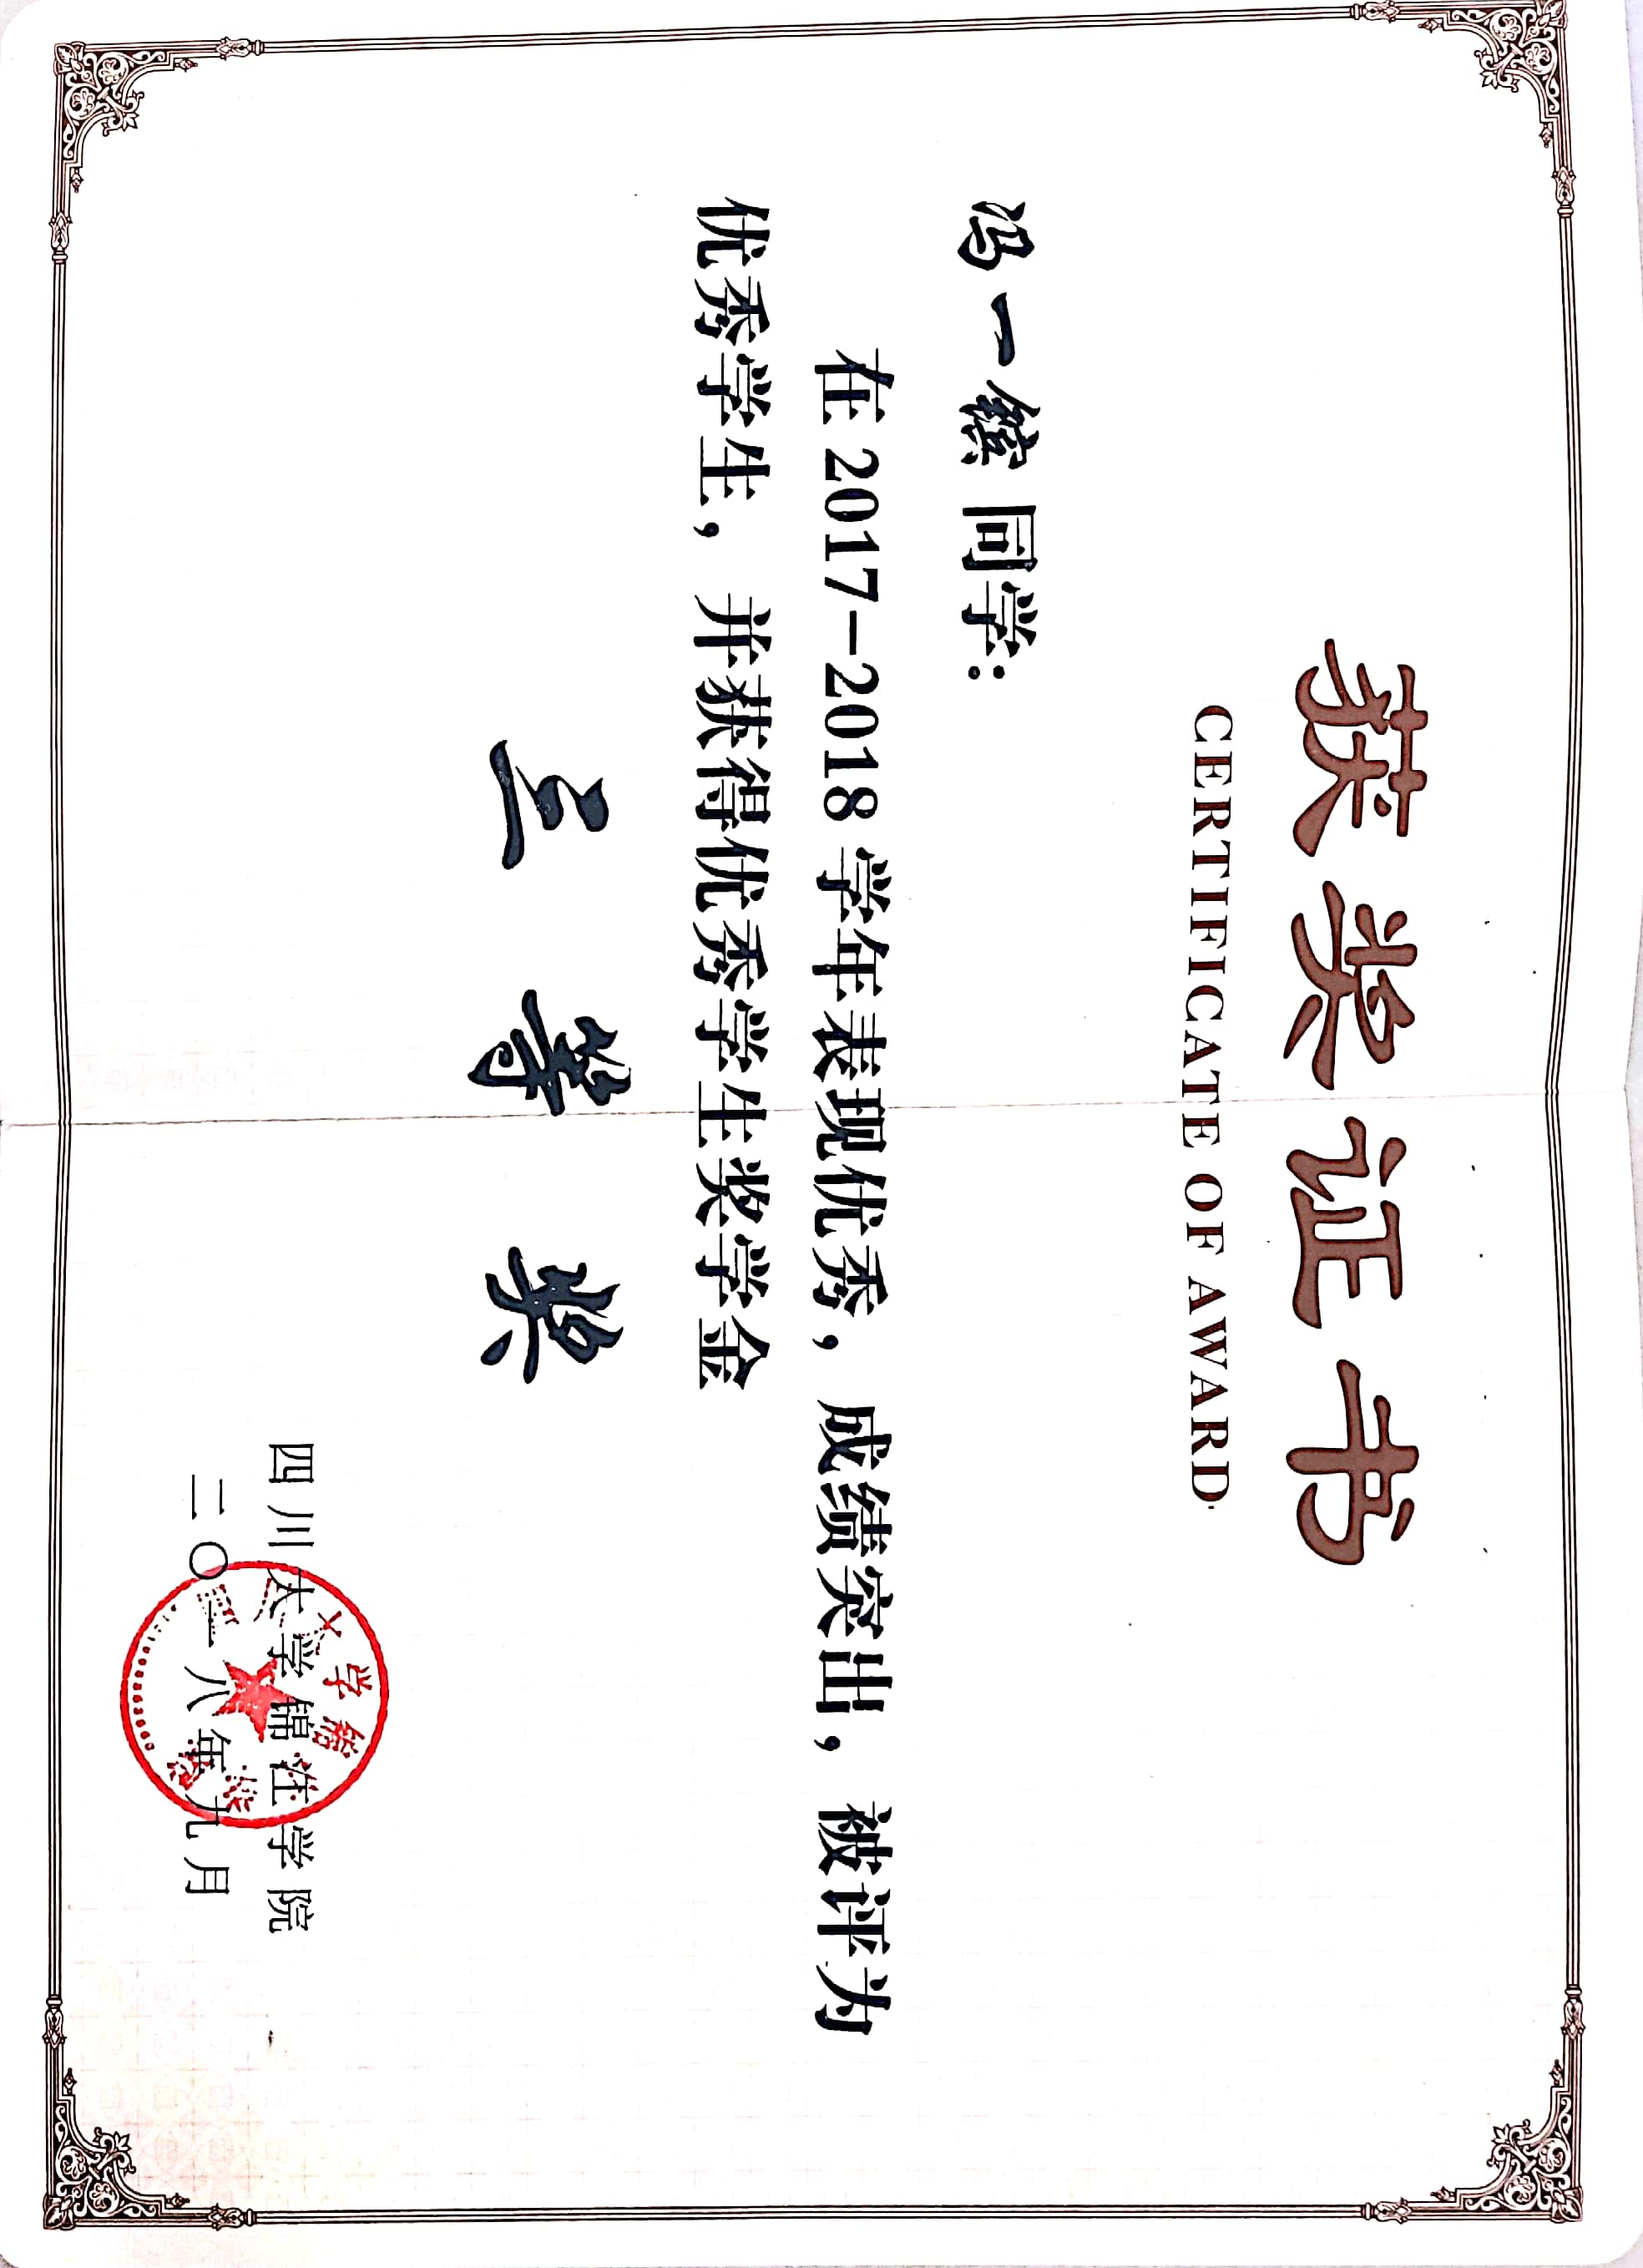 获奖证书
CERTIFICATE OF AWARD
冯一鑫 同学:
在2017-2018学年表现优秀,成绩突出,被评为
优秀学生,并获得优秀学生奖学金
三等奖
四川大学锦江学院
二〇一八年九月